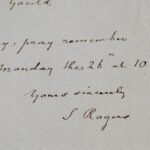 Gould
pray remember
Monday the 26th at 10
Yours sincerely
S Rogers